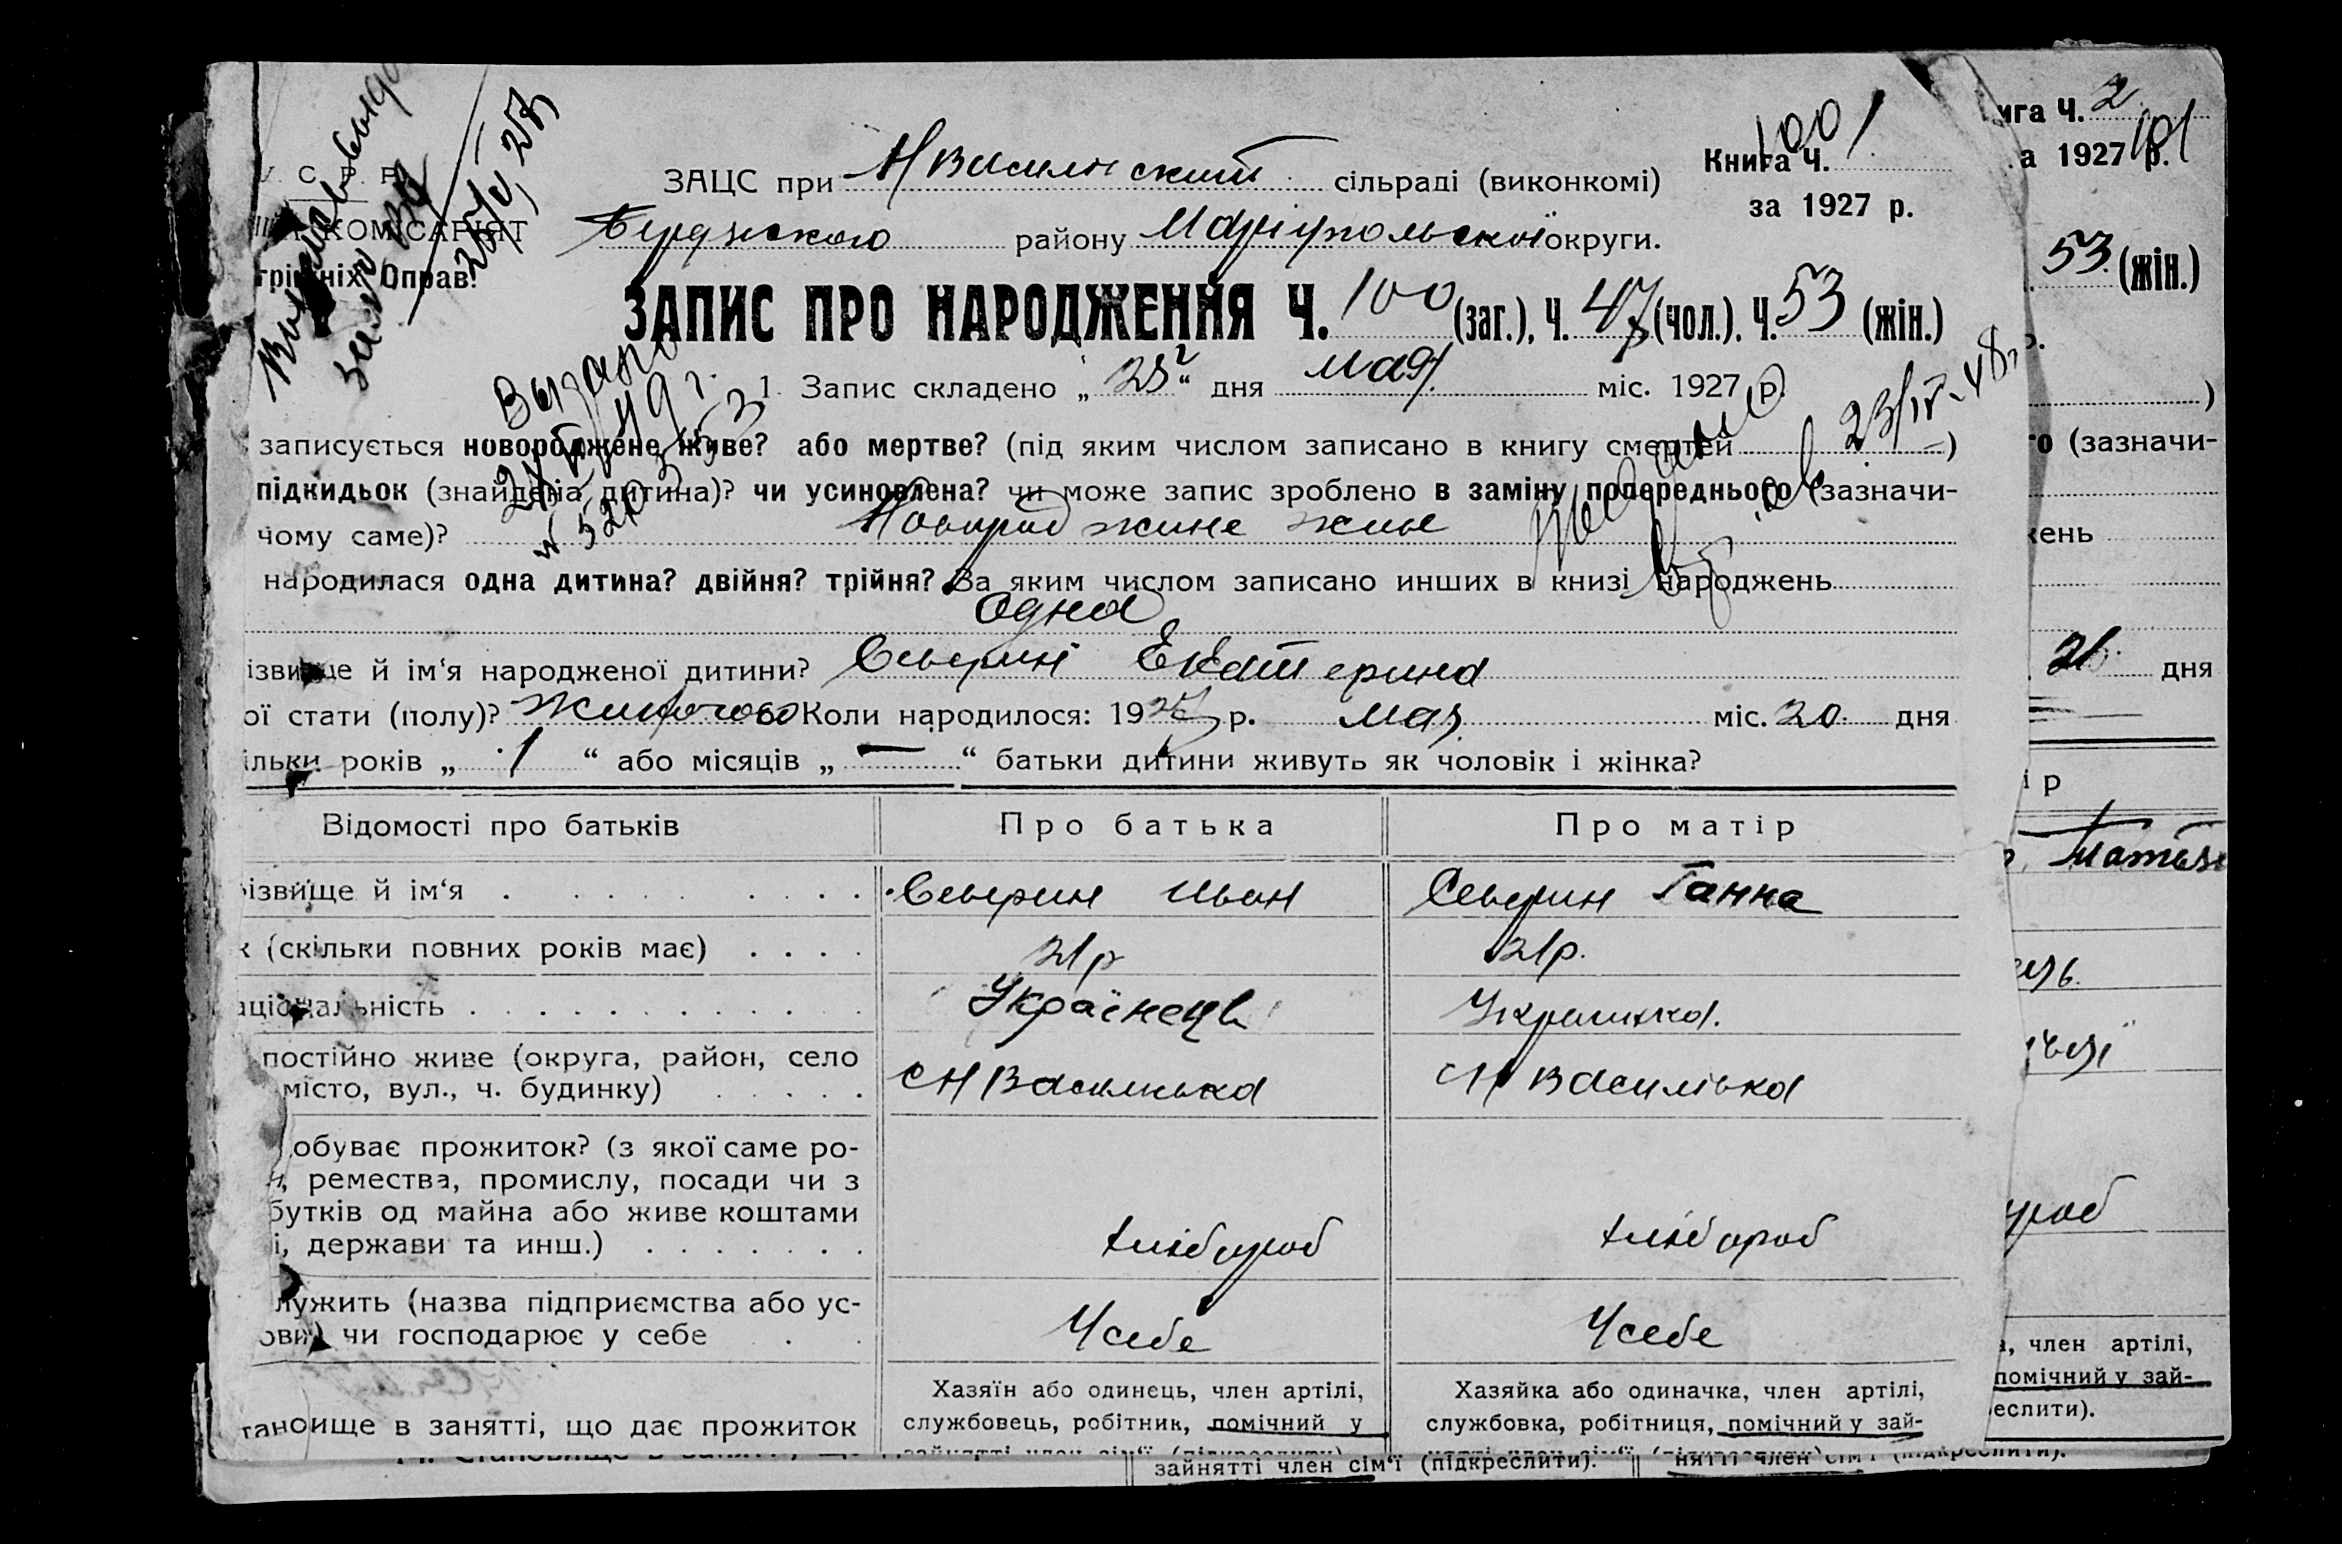 У. С. Р. Р.
КОМІСАРІЯТ
Справ.
ЗАЦС при Н Василівский сільраді (виконкомі)
Книга Ч. 1
100
за 1927 р.
Бердянского району Маріупольскої округи.
ЗАПИС ПРО НАРОДЖЕННЯ Ч. 100 (заг.), Ч. 47 (чол.), Ч. 53 (жін.)
Выдано
1. Запис складено „ 25 “ дня мая міс. 1927 р.
23/IV-48г
записується новороджене живе? або мертве? (під яким числом записано в книгу смертей )
підкидьок (знайдена дитина)? чи усиновлена? чи може запис зроблено в заміну попереднього (зазначи-
чому саме)? Новороджине живе
народилася одна дитина? двійня? трійня? За яким числом записано инших в книзі народжень
одна
ізвище й ім‘я народженої дитини? Северин Екатерина
ої стати (полу)? Жиночого Коли народилося: 1927 р. мая міс. 20 дня
ільки років „ 1 “ або місяців „ — “ батьки дитини живуть як чоловік і жінка?
Відомості про батьків Про батька Про матір
ізвище й ім‘я Северин Иван Северин Ганна
к (скільки повних років має) 21р 21р.
аціональність Українець Украинка.
постійно живе (округа, район, село
місто, вул., ч. будинку) С Н Василивка С Н Василівка
обуває прожиток? (з якої саме ро-
, ремества, промислу, посади чи з
бутків од майна або живе коштами
і, держави та инш.) хлібороб хлібороб
лужить (назва підприємства або ус-
ови) чи господарює у себе У себе У себе
тановище в занятті, що дає прожиток
Хазяїн або одинець, член артілі,
службовець, робітник, помічний у
Хазяйка або одиначка, член артілі,
службовка, робітниця, помічний у зай-
зайнятті член сім‘ї (підкреслити).
нятті член сім‘ї (підкреслити).
ига Ч. 2
101
а 1927 р.
53 (жін.)
)
о (зазначи-
жень
26 дня
ір
уроб
, член артілі,
помічний у зай-
еслити).